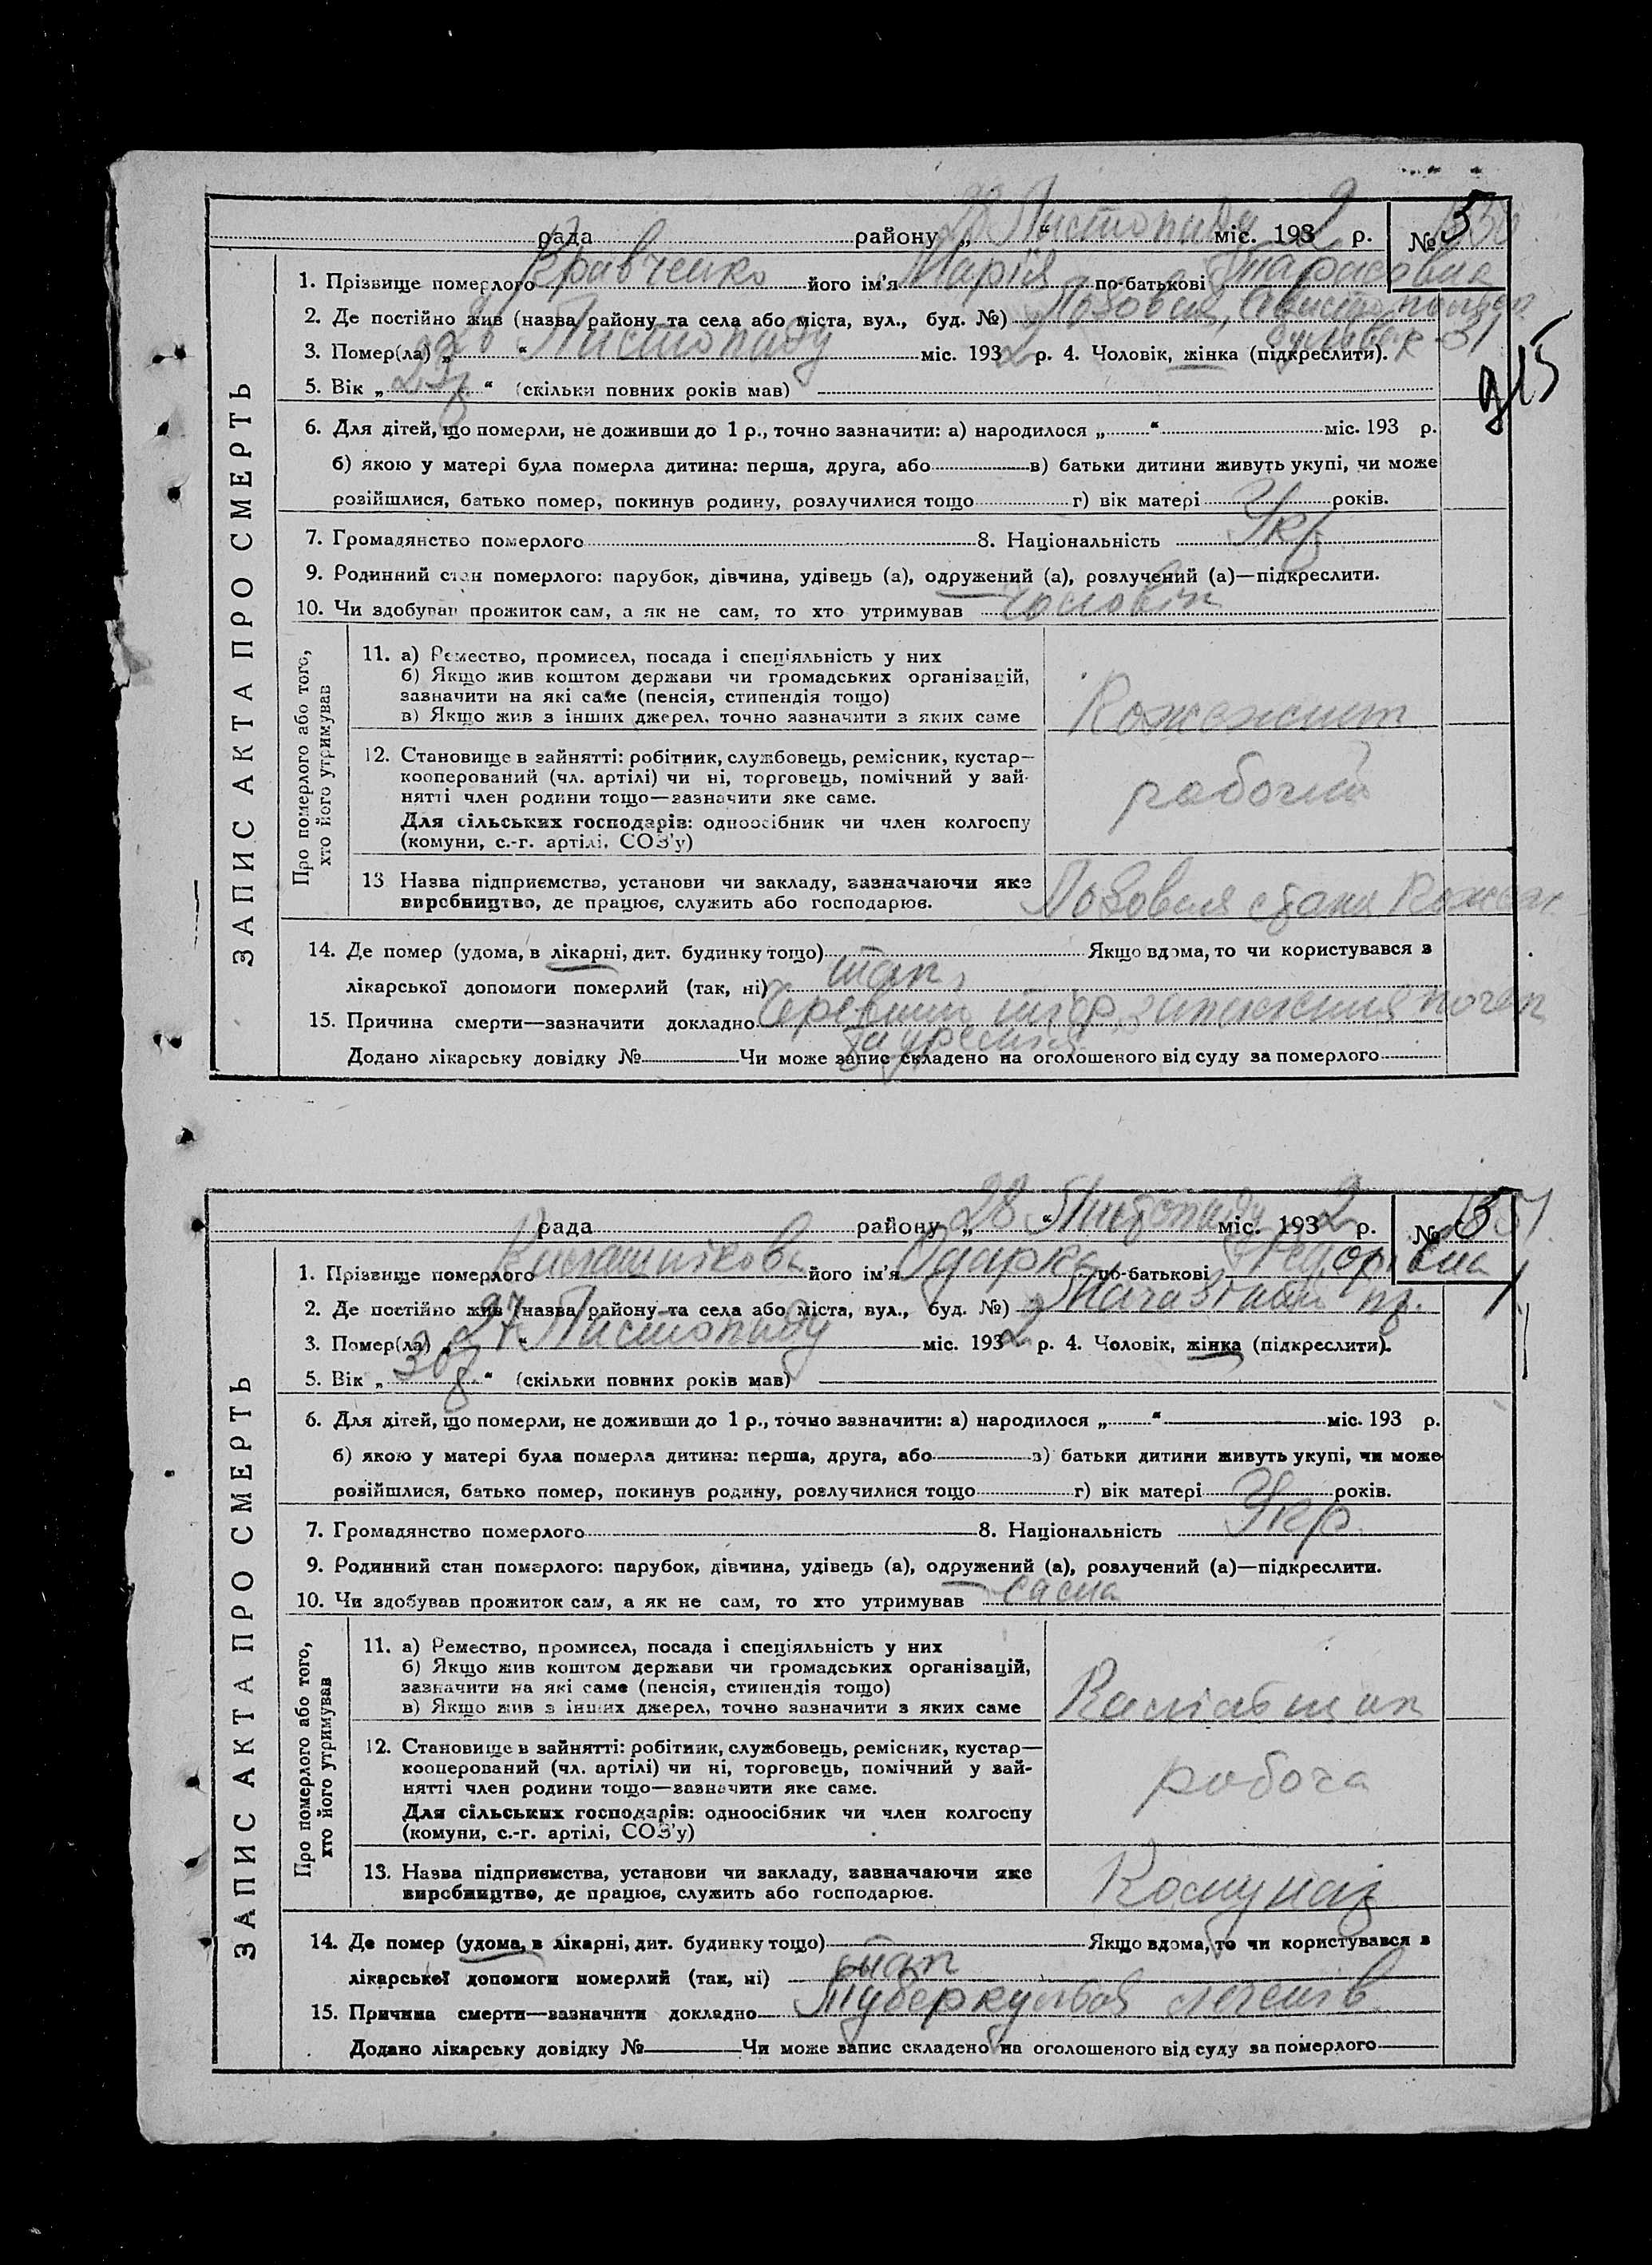 ЗАПИС АКТА ПРО СМЕРТЬ
рада району „28“ Листопаду міс. 1932 р. № 5
1. Прізвище померлого Кравченко його ім'я Марія по-батькові Тарасовна
2. Де постійно жив (назва району та села або міста, вул., буд. №) Лозовая,
3. Помер(ла) „26“ Листопаду міс. 1932 р. 4. Чоловік, жінка (підкреслити).
5. Вік „23р“ (скільки повних років мав)
6. Для дітей, що померли, не доживши до 1 р., точно зазначити: а) народилося „ “ міс. 193 р.
б) якою у матері була померла дитина: перша, друга, або в) батьки дитини живуть укупі, чи може
розійшлися, батько помер, покинув родину, розлучилися тощо г) вік матері років.
7. Громадянство померлого 8. Національність Укр
9. Родинний стан померлого: парубок, дівчина, удівець (а), одружений (а), розлучений (а)—підкреслити.
10. Чи здобував прожиток сам, а як не сам, то хто утримував чоловік
Про померлого або того,
хто його утримував
11. а) Ремество, промисел, посада і спеціяльність у них
б) Якщо жив коштом держави чи громадських організацій,
зазначити на які саме (пенсія, стипендія тощо)
в) Якщо жив з інших джерел, точно зазначити з яких саме
12. Становище в зайнятті: робітник, службовець, ремісник, кустар—
кооперований (чл. артілі) чи ні, торговець, помічний у зай-
нятті член родини тощо—зазначити яке саме.
рабочий
Для сільських господарів: одноосібник чи член колгоспу
(комуни, с.-г. артілі, СОЗ'у)
13 Назва підприємства, установи чи закладу, зазначаючи яке
виробництво, де працює, служить або господарює.
Лозовая
14. Де помер (удома, в лікарні, дит. будинку тощо) Якщо вдома, то чи користувався з
лікарської допомоги померлий (так, ні) так
15. Причина смерти—зазначити докладно Черевний тиф, запалення почек
та уремія
Додано лікарську довідку № Чи може запис складено на оголошеного від суду за померлого
ЗАПИС АКТА ПРО СМЕРТЬ
рада району „28“ Листопаду міс. 1932 р. №
1. Прізвище померлого його ім'я Одарка по-батькові Федорівна
2. Де постійно жив (назва району та села або міста, вул., буд. №)
3. Помер(ла) „27“ Листопаду міс. 1932 р. 4. Чоловік, жінка (підкреслити).
5. Вік „30р“ (скільки повних років мав)
6. Для дітей, що померли, не доживши до 1 р., точно зазначити: а) народилося „ “ міс. 193 р.
б) якою у матері була померла дитина: перша, друга, або в) батьки дитини живуть укупі, чи може
розійшлися, батько помер, покинув родину, розлучилися тощо г) вік матері років.
7. Громадянство померлого 8. Національність Укр.
9. Родинний стан померлого: парубок, дівчина, удівець (а), одружений (а), розлучений (а)—підкреслити.
10. Чи здобував прожиток сам, а як не сам, то хто утримував сама
Про померлого або того,
хто його утримував
11. а) Ремество, промисел, посада і спеціяльність у них
б) Якщо жив коштом держави чи громадських організацій,
зазначити на які саме (пенсія, стипендія тощо)
в) Якщо жив з інших джерел, точно зазначити з яких саме
12. Становище в зайнятті: робітник, службовець, ремісник, кустар—
кооперований (чл. артілі) чи ні, торговець, помічний у зай-
нятті член родини тощо—зазначити яке саме.
робоча
Для сільських господарів: одноосібник чи член колгоспу
(комуни, с.-г. артілі, СОЗ'у)
13. Назва підприємства, установи чи закладу, зазначаючи яке
виробництво, де працює, служить або господарює.
14. Де помер (удома, в лікарні, дит. будинку тощо) Якщо вдома, то чи користувався з
лікарської допомоги померлий (так, ні) так
15. Причина смерти—зазначити докладно Туберкульоз легенів
Додано лікарську довідку № Чи може запис складено на оголошеного від суду за померлого